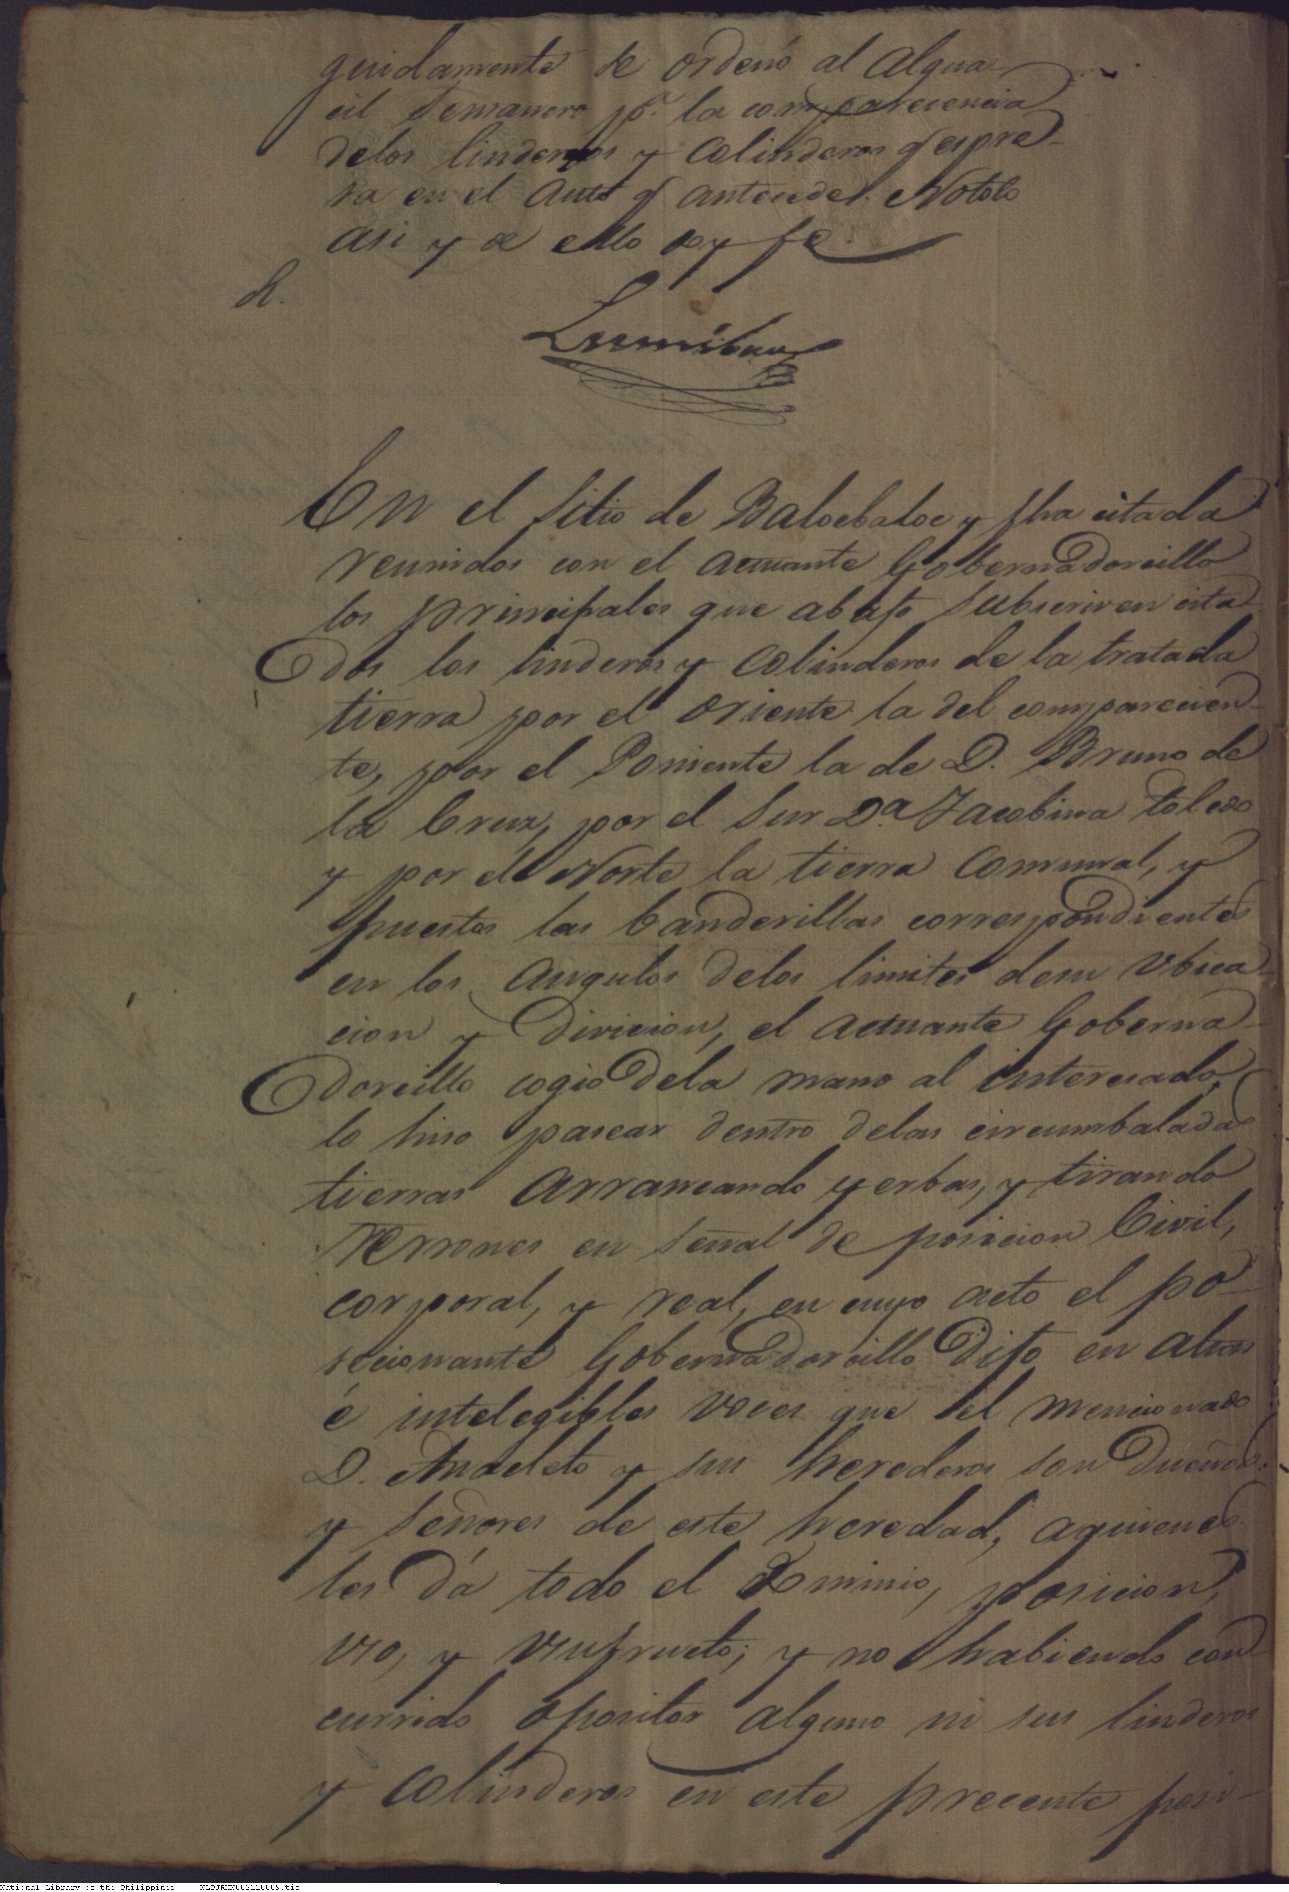 guidamente se ordenó al Algua-
cil Semanero pª. la comparecencia
delos linderos y Colinderos q espre-
sa en el Auto q antecede. Notolo
asi y de ello doy fe.
R.
En el Sitio de Balocbaloc y fha citada
reunidos con el actuante Gobernadorcillo
los principales que abajo subscriven cita
dos los linderos y Colinderos de la tratada
tierra por el oriente la del comparecien-
te, por el Poniente la de D. Bruno de
la Cruz, por el Sur Dª Jacobina toledo
y por el Norte la tierra Comunal, y
puestos las banderillas correspondientes
en los Angulos delos limites desu Vbica-
cion y Divicion, el actuante Goberna-
dorcillo cogio dela mano al interesado,
lo hiso pasear dentro delas circumbaladas
tierras Arrancando yerbas, y tirando
Terrones en señal de posicion Civil,
corporal, y real, en cuyo acto el po-
secionante Gobernadorcillo Dijo en altas
é intelegibles voces que el mencionado
D. Anacleto y sus herederos son Dueños
y Señores de este heredad, aquienes
les dá todo el Dominio, posicion,
vso, y vsufructo; y no habiendo con
currido opositor alguno ni sus linderos
y Colinderos en este precente posi-
National Library of the Philippines